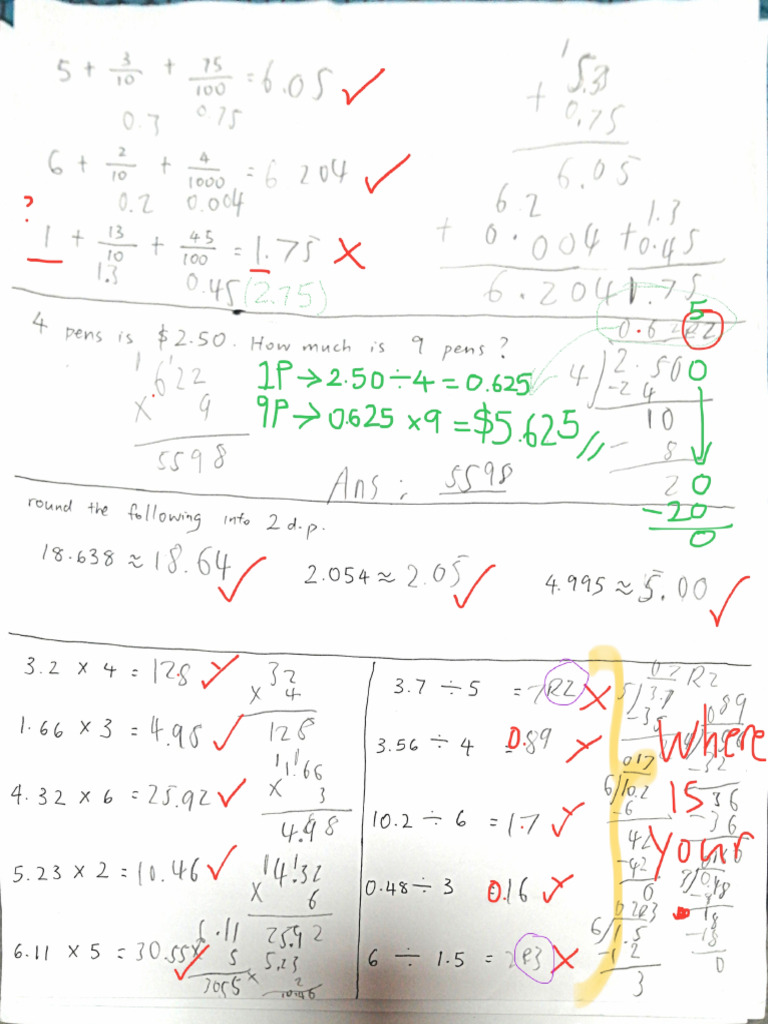 5 + 3/10 + 75/100 = 6.05 ✓
0.3 0.75
1
5.3
+ 0.75
6.05
6 + 2/10 + 4/1000 = 6 204 ✓
0.2 0.004
6.2
+ 0.004
6.204
?
1 + 13/10 + 45/100 = 1.75 ✗
1.3 0.45 (2.75)
1.3
+ 0.45
1.75
4 pens is $2.50. How much is 9 pens?
1 1
6.22
× 9
5598
1P → 2.50 ÷ 4 = 0.625
9P → 0.625 × 9 = $5.625 //
5
0.62 R2
4 ) 2.500
-2 4
10
- 8
2 0
-20
0
Ans: 5598
round the following into 2 d.p.
18.638 ≈ 18.64 ✓
2.054 ≈ 2.05 ✓
4.995 ≈ 5.00 ✓
3.2 × 4 = 12.8 ✓
32
× 4
128
1.66 × 3 = 4.98 ✓
1 1
1.66
× 3
4.98
4.32 × 6 = 25.92 ✓
1 1
4.32
× 6
25.92
5.23 × 2 = 10.46 ✓
5.23
× 2
10.46
6.11 × 5 = 30.55 ✓
6.11
× 5
3055
3.7 ÷ 5 = 7R2 ✗
07 R2
5 ) 3.7
-35
3.56 ÷ 4 0.89 ✗
089
-32
36
-36
10.2 ÷ 6 = 1.7 ✓
017
6 ) 10.2
-6
42
-42
0
0.48 ÷ 3 0.16 ✓
18
-18
0
6 ÷ 1.5 = 2R3 ✗
02R3
6 ) 1.5
-1 2
3
Where
is
your